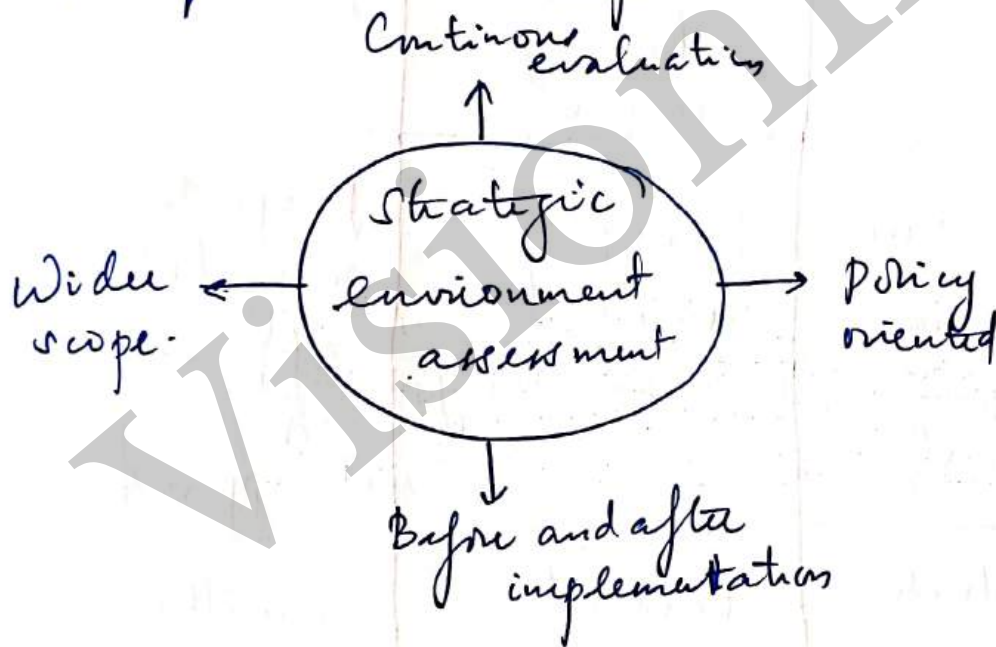 Continous
evaluation
Strategic
environment
assessment
Wider
scope.
Policy
oriented
Before and after
implementation
Vision